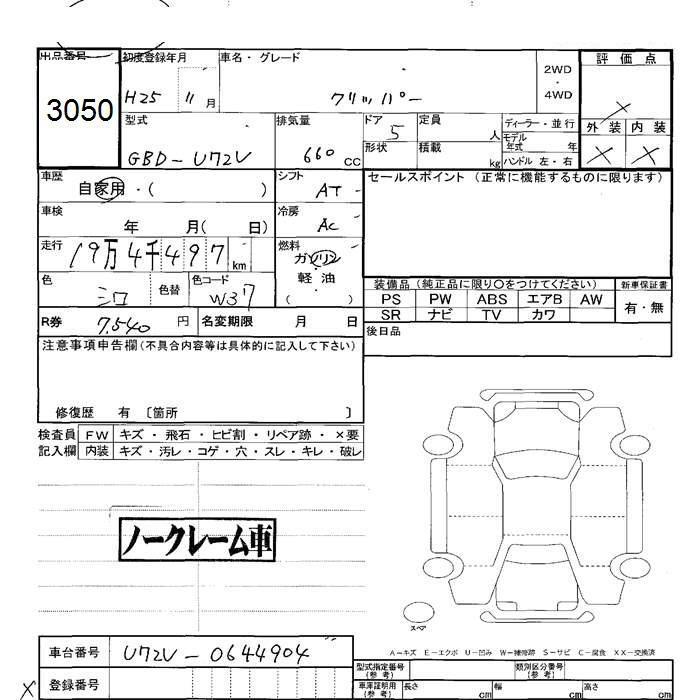 出品番号 初度登録年月 車名・グレード 評価点
3050
H25 11月 クリッパー 2WD・4WD ×
型式 排気量 ドア 定員 ディーラー・並行 外装 内装
GBD-U72V 660cc 5 人 モデル年式 年 × ×
形状 積載 kg ハンドル 左・右
車歴 シフト セールスポイント(正常に機能するものに限ります)
自家用・( ) AT
車検 冷房
年 月( 日) AC
走行 燃料
19万4千497km ガソリン
軽油
( )
色 色替 色コード 装備品(純正品に限り○をつけてください) 新車保証書
シロ W37 PS PW ABS エアB AW 有・無
SR ナビ TV カワ
R券 7,540円 名変期限 月 日 後日品
注意事項申告欄(不具合内容等は具体的に記入して下さい)
修復歴 有 〔箇所 〕
検査員 FW キズ・飛石・ヒビ割・リペア跡・×要
記入欄 内装 キズ・汚レ・コゲ・穴・スレ・キレ・破レ
ノークレーム車
スペア
A-キズ E-エクボ U-凹み W-補修跡 S-サビ C-腐食 XX-交換済
車台番号 U72V-0644904 型式指定番号(参考) 類別区分番号(参考)
登録番号 車庫証明用(参考) 長さ cm 幅 cm 高さ cm
×